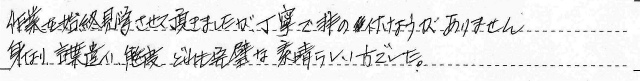 作業を始終見学させて頂きましたが丁寧で非の付けようがありません
身なり、言葉遣い、態度どれも完璧な素晴らしい方でした。